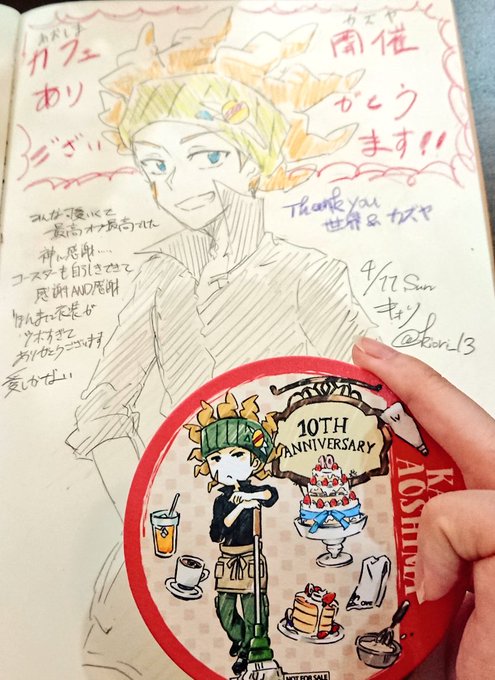 あおしま カズヤ
カフェ 開催
あり がとう
ござい ます!!
こんな 良い
最高オブ最高でした
神に感謝……
コースターも自引きできて
感謝AND感謝
ほんまに衣装が
ツボすぎて
ありがとうございます
愛しかない
Thank you
世界 & カズヤ
4/17 Sun
キオリ
@kiori_13
10TH
ANNIVERSARY
10
KA
AOSHIMA
NOT FOR SALE